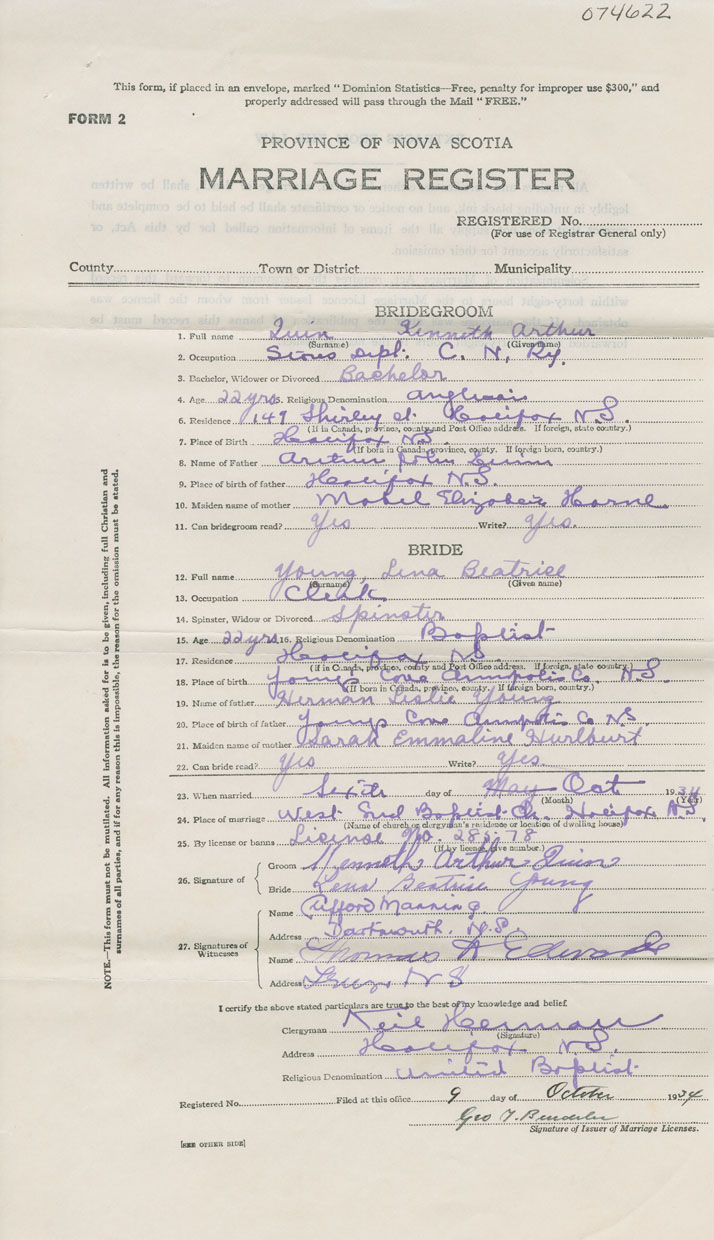 074622
This form, if placed in an envelope, marked "Dominion Statistics—Free, penalty for improper use $300," and
properly addressed will pass through the Mail "FREE."
FORM 2
PROVINCE OF NOVA SCOTIA
MARRIAGE REGISTER
REGISTERED No.
(For use of Registrar General only)
County Town or District Municipality
BRIDEGROOM
1. Full name Quin Kenneth Arthur
(Surname) (Given name)
2. Occupation Stores Dept. C. N. Ry.
3. Bachelor, Widower or Divorced Bachelor
4. Age 22 yrs 5. Religious Denomination Anglican
6. Residence 149 Shirley St. Halifax N.S.
(If in Canada, province, county and Post Office address. If foreign, state country.)
7. Place of Birth Halifax N.S.
(If born in Canada, province, county. If foreign born, country.)
8. Name of Father Arthur John
9. Place of birth of father Halifax N.S.
10. Maiden name of mother Mabel Elizabeth Horne
11. Can bridegroom read? Yes Write? Yes.
BRIDE
12. Full name Young, Lena Beatrice
(Surname) (Given name)
13. Occupation Clerk
14. Spinster, Widow or Divorced Spinster
15. Age 22 yrs 16. Religious Denomination Baptist
17. Residence Halifax N.S.
(If in Canada, province, county and Post Office address. If foreign, state country.)
18. Place of birth Youngs Cove Annapolis Co. N.S.
(If born in Canada, province, county. If foreign born, country.)
19. Name of father Herman Leslie Young
20. Place of birth of father Youngs Cove Annapolis Co N.S.
21. Maiden name of mother Sarah Emmaline Hurlburt
22. Can bride read? Yes Write? Yes.
23. When married Sixth day of May Oct 1934
(Month) (Year)
24. Place of marriage West End Baptist Ch. Halifax N.S.
(Name of church or clergyman's residence or location of dwelling house)
25. By license or banns License No. 28578
(If by license, give number.)
26. Signature of
Groom Kenneth Arthur Quinn
Bride Lena Beatrice Young
27. Signatures of Witnesses
Name Clifford Manning
Address Dartmouth, N.S.
Name Thomas A Edwards
Address Truro, N S
I certify the above stated particulars are true to the best of my knowledge and belief.
Clergyman Neil Herman
(Signature)
Address Halifax N.S.
Religious Denomination United Baptist
Registered No. Filed at this office 9 day of October 1934
Geo T.
Signature of Issuer of Marriage Licenses.
[SEE OTHER SIDE]
NOTE.—This form must not be mutilated. All information asked for is to be given, including full Christian and
surnames of all parties, and if for any reason this is impossible, the reason for the omission must be stated.